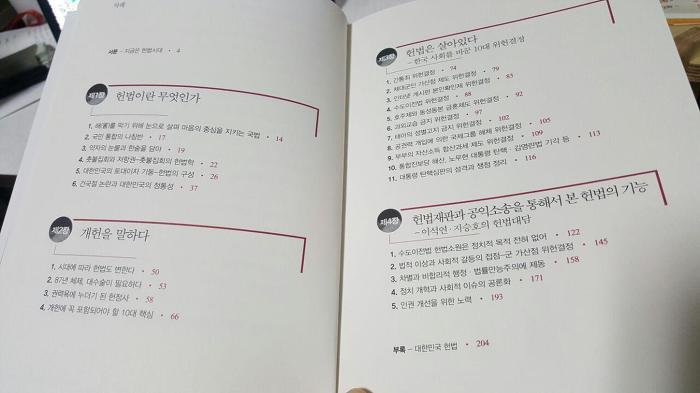 차례
서문 – 지금은 헌법시대 • 4
제1장 헌법이란 무엇인가
1. 해(害)를 막기 위해 눈으로 살펴 마음의 중심을 지키는 국법 • 14
2. 국민 통합의 나침반 • 17
3. 약자의 눈물과 한숨을 담아 • 19
4. 촛불집회와 저항권–촛불집회의 헌법학 • 22
5. 대한민국의 토대이자 기둥–헌법의 구성 • 26
6. 건국절 논란과 대한민국의 정통성 • 37
제2장 개헌을 말하다
1. 시대에 따라 헌법도 변한다 • 50
2. 87년 체제, 대수술이 필요하다 • 53
3. 권력욕에 누더기 된 헌정사 • 58
4. 개헌에 꼭 포함되어야 할 10대 핵심 • 66
제3장 헌법은 살아있다
– 한국 사회를 바꾼 10대 위헌결정
1. 간통죄 위헌결정 • 74
2. 제대군인 가산점 제도 위헌결정 • 79
3. 인터넷 게시판 본인확인제 위헌결정 • 83
4. 수도이전법 위헌결정 • 88
5. 호주제와 동성동본 금혼제도 위헌결정 • 92
6. 과외교습 금지 위헌결정 • 97
7. 태아의 성별고지 금지 위헌결정 • 102
8. 공권력 개입에 의한 국제그룹 해체 위헌결정 • 105
9. 부부의 자산소득 합산과세 제도 위헌결정 • 109
10. 통합진보당 해산, 노무현 대통령 탄핵 · 김영란법 기각 등 • 113
11. 대통령 탄핵심판의 성격과 쟁점 정리 • 116
제4장 헌법재판과 공익소송을 통해서 본 헌법의 기능
– 이석연 · 지승호의 헌법대담
1. 수도이전법 헌법소원은 정치적 목적 전혀 없어 • 122
2. 법적 이상과 사회적 갈등의 접점–군 가산점 위헌결정 • 145
3. 차별과 비합리적 행정 · 법률만능주의에 제동 • 158
4. 정치 개혁과 사회적 이슈의 공론화 • 171
5. 인권 개선을 위한 노력 • 193
부록 – 대한민국 헌법 • 204